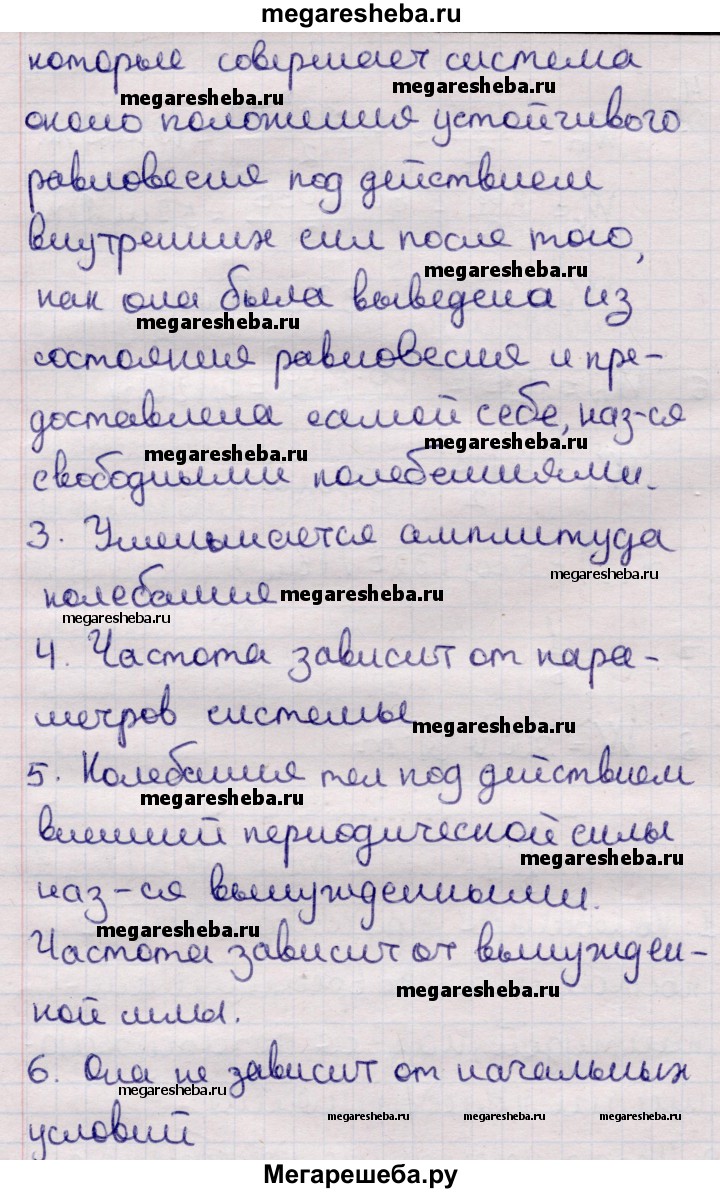 megaresheba.ru
которые совершает система
megaresheba.ru
megaresheba.ru
около положения устойчивого
равновесия под действием
внутренних сил после того,
megaresheba.ru
как она была выведена из
megaresheba.ru
состояния равновесия и пре-
доставлена самой себе, наз-ся
megaresheba.ru
megaresheba.ru
свободными колебаниями.
3. Уменьшается амплитуда
megaresheba.ru
колебания
megaresheba.ru
megaresheba.ru
4. Частота зависит от пара-
метров системы
megaresheba.ru
5. Колебания тел под действием
megaresheba.ru
внешней периодической силы
megaresheba.ru
наз-ся вынужденными.
megaresheba.ru
Частота зависит от вынужден-
megaresheba.ru
ной силы.
6. Она не зависит от начальных
megaresheba.ru
megaresheba.ru
megaresheba.ru
условий
Мегарешеба.ру